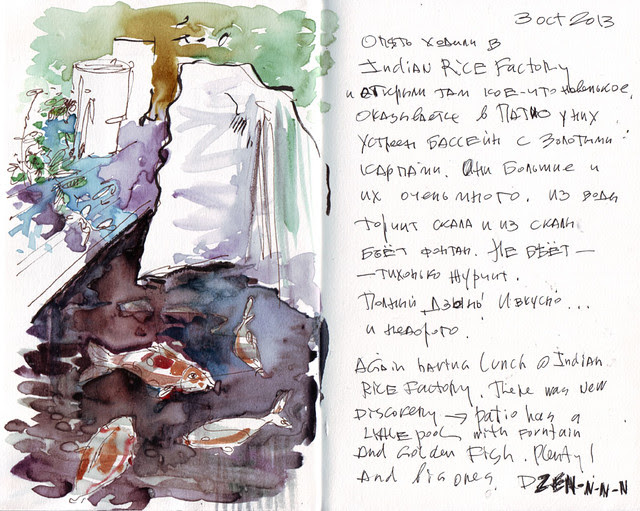 3 oct 2013
Опять ходили в
Indian Rice Factory
и открыли там кое-что новенькое.
Оказывается в патио у них
устроен бассейн с золотыми
карпами. Они большие и
их очень много. Из воды
торчит скала и из скалы
бьёт фонтан. Не бьёт —
— тихонько журчит.
Полный дзынь! И вкусно...
и недорого.
Again having lunch @ Indian
Rice Factory. There was new
discovery → patio has a
little pool with fountain
and golden fish. Plenty!
And big ones. DZEN-N-N-N